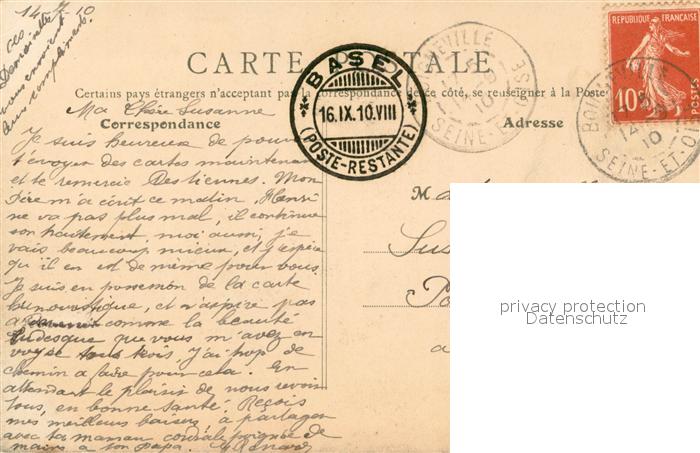 14-9-10
ces
Demoiselles
vous envoient
leurs compliments
CARTE POSTALE
Certains pays étrangers n'acceptant pas la correspondance de ce côté, se renseigner à la Poste
Correspondance
Adresse
RÉPUBLIQUE FRANÇAISE
10c
POSTES
BASEL
16.IX.10.VIII
(POSTE-RESTANTE)
SEINE-ET-OISE
14
10
SEINE-ET-O
Ma Chère Susanne
Je suis heureux de pouvoir
t'envoyer des cartes maintenant
et te remercie des tiennes. Mon
Père m'a écrit ce matin, Henri
ne va pas plus mal, il continue
son traitement, moi aussi, je
vais beaucoup mieux, et j'espère
qu'il en est de même pour vous.
Je suis en possession de la carte
et n'aspire pas
comme la beauté
tudesque que vous m'avez en
voyée tous trois. J'ai trop de
chemin à faire pour cela. En
attendant le plaisir de vous revoir
tous, en bonne santé. Reçois
mes meilleurs baisers, à partager
avec ta maman cordiale poignée de
mains à ton papa.
M
Sus
a
privacy protection
Datenschutz